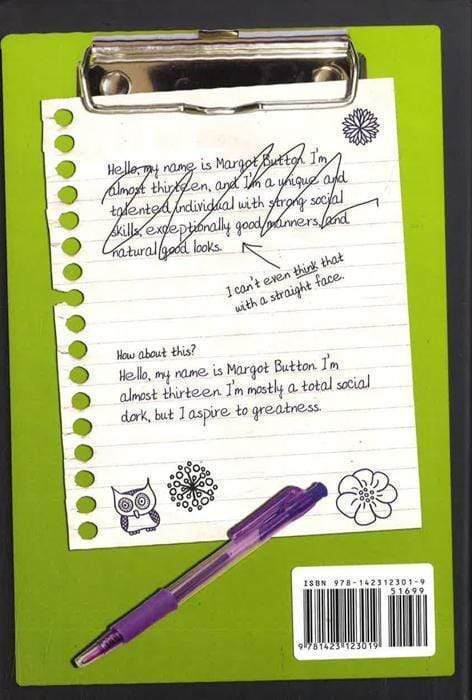 Hello, my name is Margot Button. I'm
almost thirteen, and I'm a unique and
talented individual with strong social
skills, exceptionally good manners, and
natural good looks.
I can't even think that
with a straight face.
How about this?
Hello, my name is Margot Button. I'm
almost thirteen. I'm mostly a total social
dork, but I aspire to greatness.
ISBN 978-142312301-9
51699
9781423123019